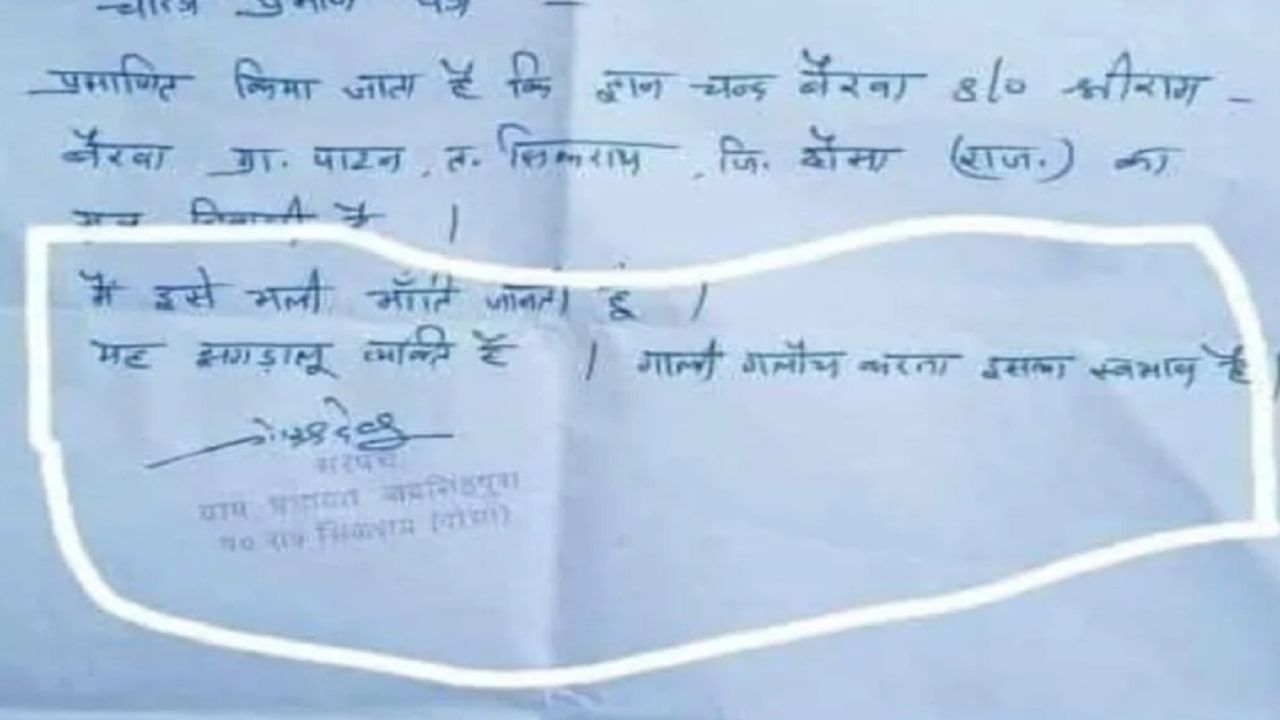 चरित्र प्रमाण पत्र -
प्रमाणित किया जाता है कि ज्ञान चन्द बैरवा S/o श्रीराम -
बैरवा ग्रा. पाटन, त. सिकराय, जि. दौसा (राज.) का
मूल निवासी है ।
मैं इसे भली भाँति जानता हूं ।
यह झगड़ालू व्यक्ति है । गाली गलौच करना इसका स्वभाव है ।
सरपंच
ग्राम पंचायत
सिकराय (दौसा)